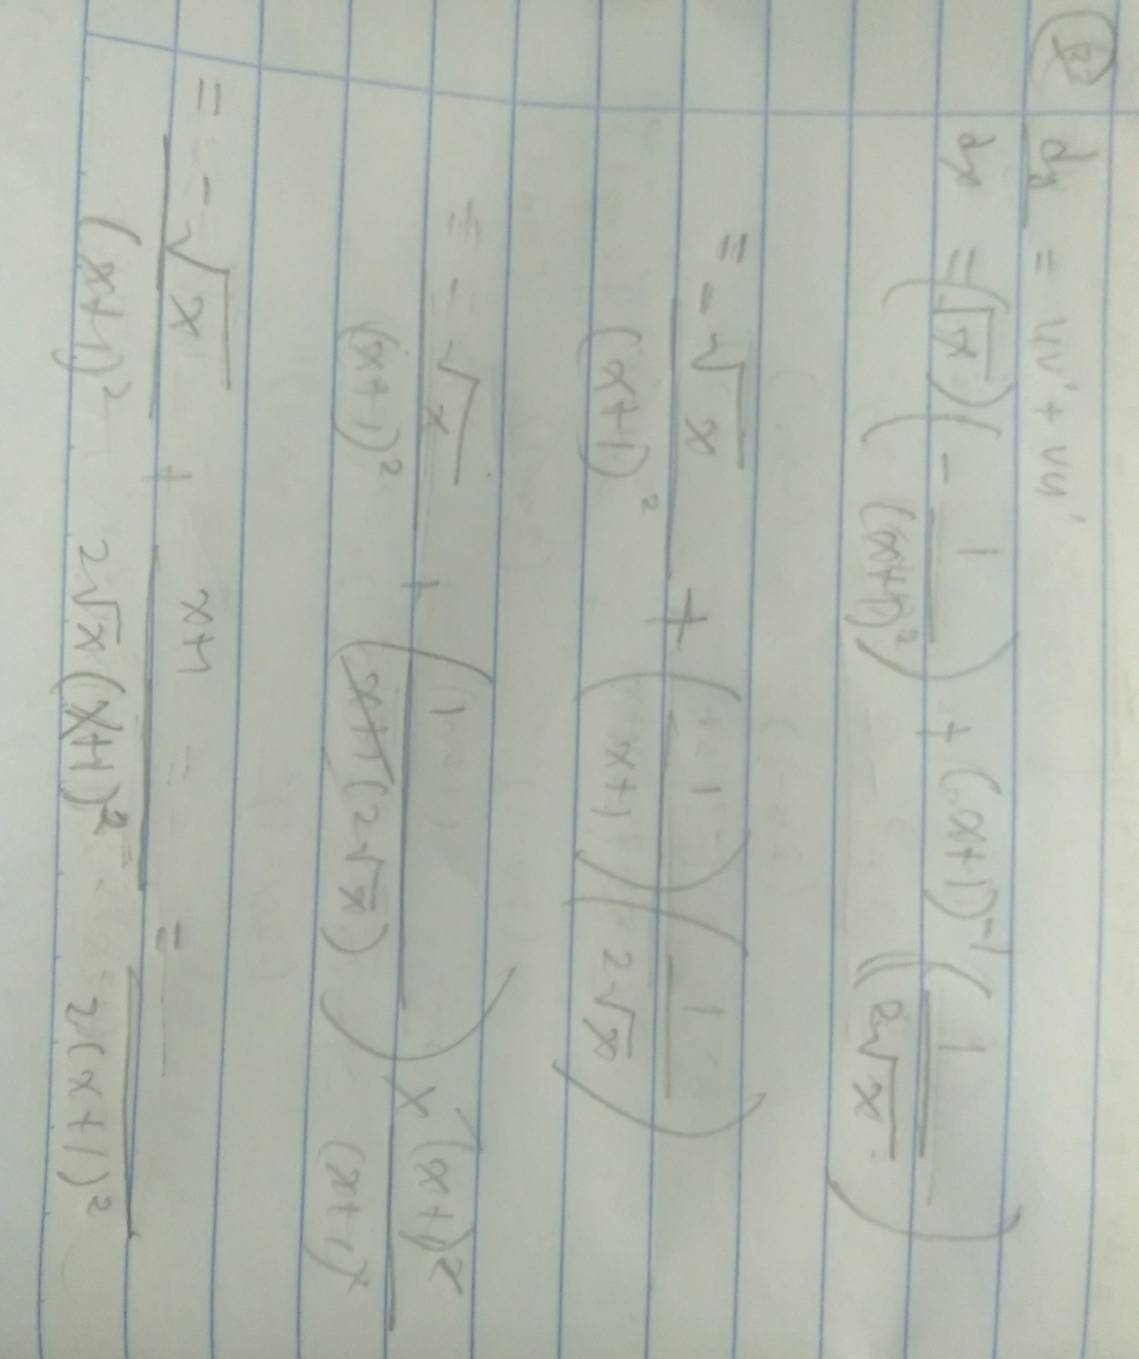 dy/dx = uv' + vu'
= (√x)(-1/(x+1)²) + (x+1)⁻¹(1/(2√x))
= -√x/(x+1)² + (1/(x+1))(1/(2√x))
= -√x/(x+1)² + (1/(x+1(2√x))) × (x+1)²/(x+1)²
= -√x/(x+1)² + x+1/2√x(x+1)² = /2(x+1)²